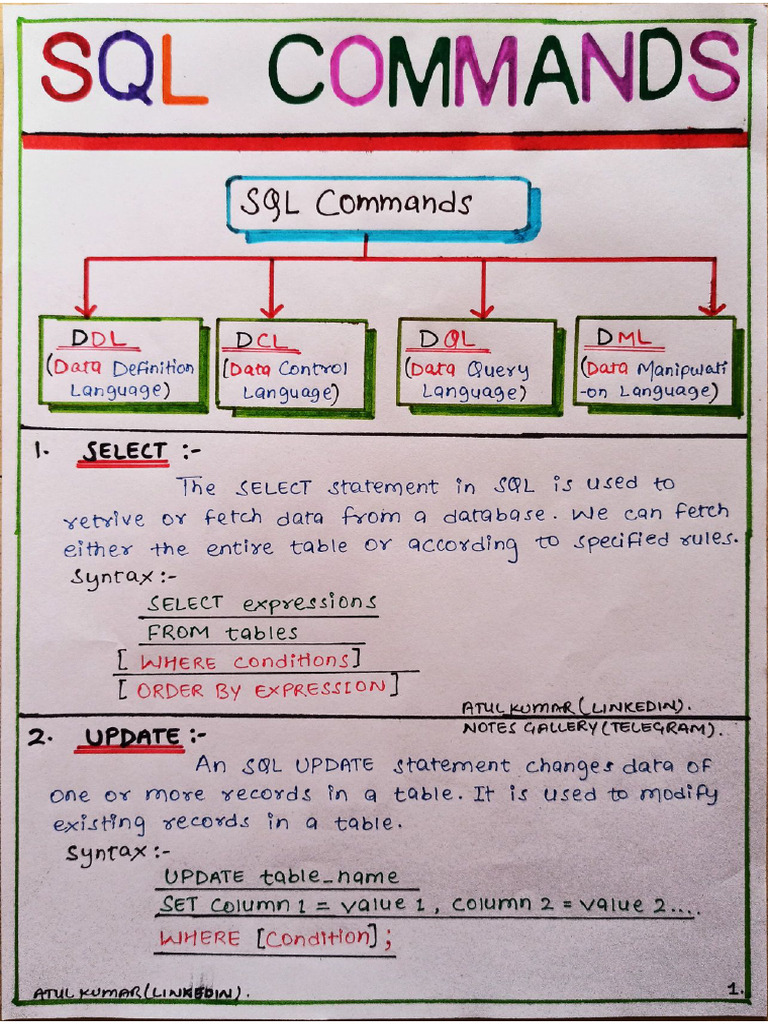 SQL COMMANDS
SQL Commands
DDL
(Data Definition
Language)
DCL
[Data Control
Language)
DQL
(Data Query
Language)
DML
(Data Manipulati
-on Language)
1. SELECT :-
The SELECT statement in SQL is used to
retrive or fetch data from a database. We can fetch
either the entire table or according to specified rules.
Syntax :-
SELECT expressions
FROM tables
[ WHERE conditions]
[ ORDER BY EXPRESSION]
ATUL KUMAR (LINKEDIN).
NOTES GALLERY (TELEGRAM).
2. UPDATE :-
An SQL UPDATE statement changes data of
one or more records in a table. It is used to modify
existing records in a table.
Syntax :-
UPDATE table_name
SET Column 1 = value 1, Column 2 = value 2....
WHERE [Condition];
ATUL KUMAR (LINKEDIN).
1.